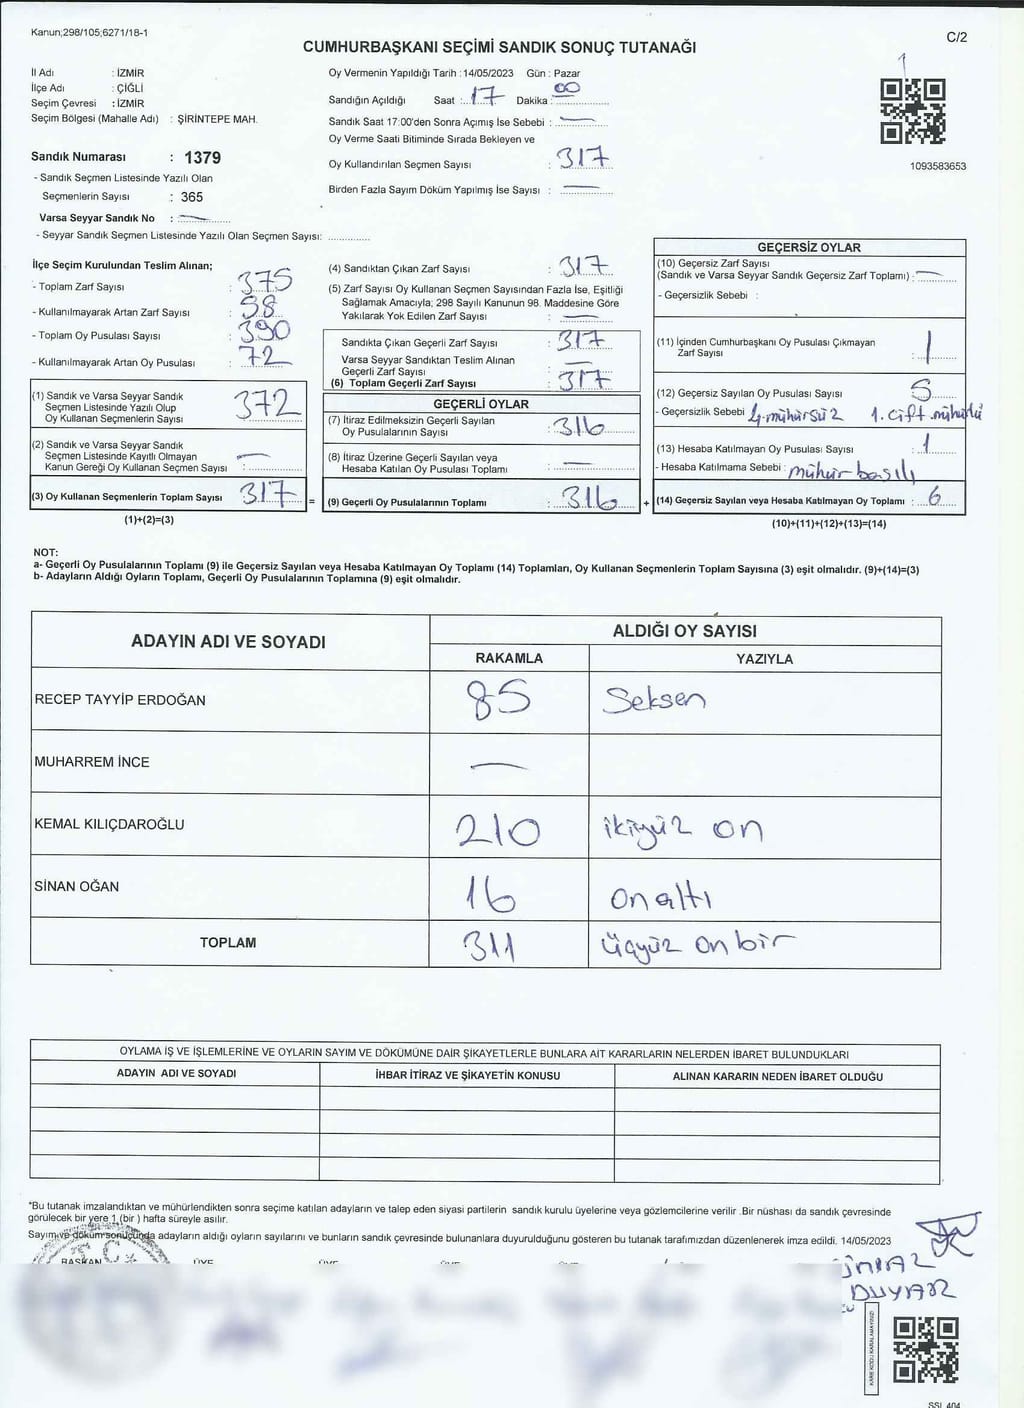 Kanun;298/105;6271/18-1
C/2
CUMHURBAŞKANI SEÇİMİ SANDIK SONUÇ TUTANAĞI
1
İl Adı : İZMİR
İlçe Adı : ÇİĞLİ
Seçim Çevresi : İZMİR
Seçim Bölgesi (Mahalle Adı) : ŞİRİNTEPE MAH.
Sandık Numarası : 1379
- Sandık Seçmen Listesinde Yazılı Olan
Seçmenlerin Sayısı : 365
Varsa Seyyar Sandık No : —
- Seyyar Sandık Seçmen Listesinde Yazılı Olan Seçmen Sayısı: ..............
Oy Vermenin Yapıldığı Tarih : 14/05/2023 Gün : Pazar
Sandığın Açıldığı Saat : 17 Dakika : 00
Sandık Saat 17:00'den Sonra Açımış İse Sebebi : —
Oy Verme Saati Bitiminde Sırada Bekleyen ve
Oy Kullandırılan Seçmen Sayısı : 317
Birden Fazla Sayım Döküm Yapılmış İse Sayısı : —
1093583653
İlçe Seçim Kurulundan Teslim Alınan;
- Toplam Zarf Sayısı : 375
- Kullanılmayarak Artan Zarf Sayısı : 58
- Toplam Oy Pusulası Sayısı : 390
- Kullanılmayarak Artan Oy Pusulası : 72
(1) Sandık ve Varsa Seyyar Sandık
Seçmen Listesinde Yazılı Olup
Oy Kullanan Seçmenlerin Sayısı 372
(2) Sandık ve Varsa Seyyar Sandık
Seçmen Listesinde Kayıtlı Olmayan
Kanun Gereği Oy Kullanan Seçmen Sayısı : —
(3) Oy Kullanan Seçmenlerin Toplam Sayısı 317 =
(1)+(2)=(3)
(4) Sandıktan Çıkan Zarf Sayısı : 317
(5) Zarf Sayısı Oy Kullanan Seçmen Sayısından Fazla İse, Eşitliği
Sağlamak Amacıyla; 298 Sayılı Kanunun 98. Maddesine Göre
Yakılarak Yok Edilen Zarf Sayısı : —
Sandıkta Çıkan Geçerli Zarf Sayısı : 317
Varsa Seyyar Sandıktan Teslim Alınan
Geçerli Zarf Sayısı : —
(6) Toplam Geçerli Zarf Sayısı : 317
GEÇERLİ OYLAR
(7) İtiraz Edilmeksizin Geçerli Sayılan
Oy Pusulalarının Sayısı : 316
(8) İtiraz Üzerine Geçerli Sayılan veya
Hesaba Katılan Oy Pusulası Toplamı : —
(9) Geçerli Oy Pusulalarının Toplamı : 316 +
GEÇERSİZ OYLAR
(10) Geçersiz Zarf Sayısı
(Sandık ve Varsa Seyyar Sandık Geçersiz Zarf Toplamı) : —
- Geçersizlik Sebebi :
(11) İçinden Cumhurbaşkanı Oy Pusulası Çıkmayan
Zarf Sayısı : 1
(12) Geçersiz Sayılan Oy Pusulası Sayısı : 5
- Geçersizlik Sebebi : 4.mühürsüz 1. çift mühürlü
(13) Hesaba Katılmayan Oy Pusulası Sayısı : 1
- Hesaba Katılmama Sebebi : mühür basılı
(14) Geçersiz Sayılan veya Hesaba Katılmayan Oy Toplamı : 6
(10)+(11)+(12)+(13)=(14)
NOT:
a- Geçerli Oy Pusulalarının Toplamı (9) ile Geçersiz Sayılan veya Hesaba Katılmayan Oy Toplamı (14) Toplamları, Oy Kullanan Seçmenlerin Toplam Sayısına (3) eşit olmalıdır. (9)+(14)=(3)
b- Adayların Aldığı Oyların Toplamı, Geçerli Oy Pusulalarının Toplamına (9) eşit olmalıdır.
ADAYIN ADI VE SOYADI
ALDIĞI OY SAYISI
RAKAMLA YAZIYLA
RECEP TAYYİP ERDOĞAN 85 Seksen
MUHARREM İNCE —
KEMAL KILIÇDAROĞLU 210 ikiyüz on
SİNAN OĞAN 16 on altı
TOPLAM 311 üçyüz on bir
OYLAMA İŞ VE İŞLEMLERİNE VE OYLARIN SAYIM VE DÖKÜMÜNE DAİR ŞİKAYETLERLE BUNLARA AİT KARARLARIN NELERDEN İBARET BULUNDUKLARI
ADAYIN ADI VE SOYADI İHBAR İTİRAZ VE ŞİKAYETİN KONUSU ALINAN KARARIN NEDEN İBARET OLDUĞU
*Bu tutanak imzalandıktan ve mühürlendikten sonra seçime katılan adayların ve talep eden siyasi partilerin sandık kurulu üyelerine veya gözlemcilerine verilir .Bir nüshası da sandık çevresinde
görülecek bir yere 1 (bir ) hafta süreyle asılır.
Sayım ve döküm sonucunda adayların aldığı oyların sayılarını ve bunların sandık çevresinde bulunanlara duyurulduğunu gösteren bu tutanak tarafımızdan düzenlenerek imza edildi. 14/05/2023
T.C.
BAŞKAN ÜYE ÜYE ÜYE
DUYAR
KARE KODU KARALAMAYINIZ!
SSI 404